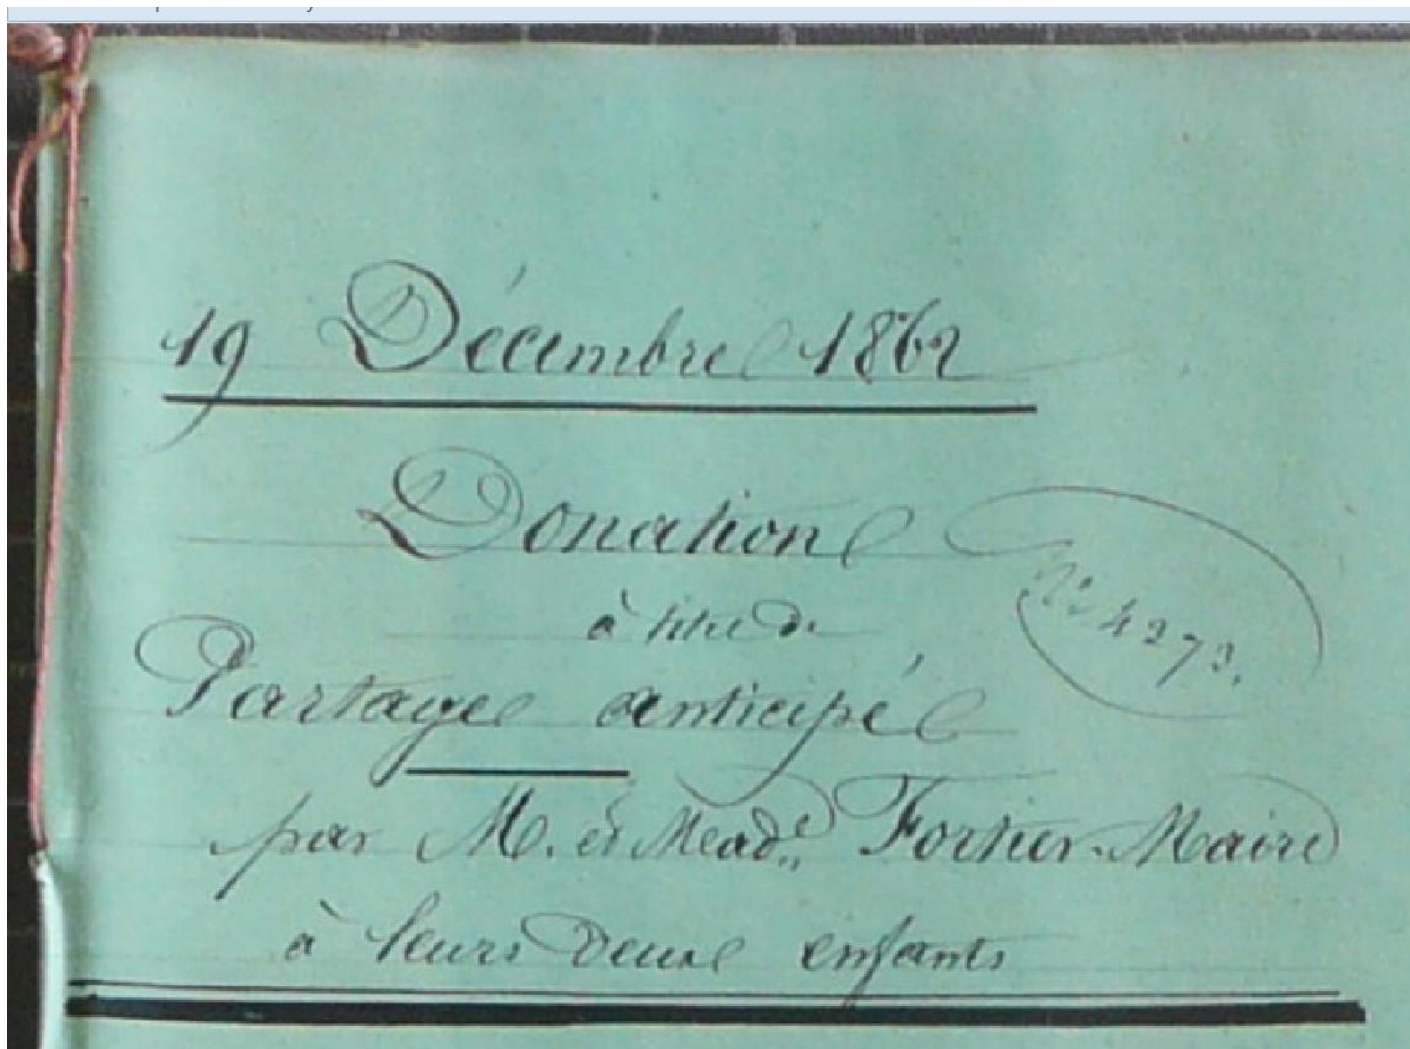 19 Décembre 1862
Donation
à titre de
Nº 4273.
Partage anticipé
par M. et Mead.e Fortier-Maire
à leurs deux enfants